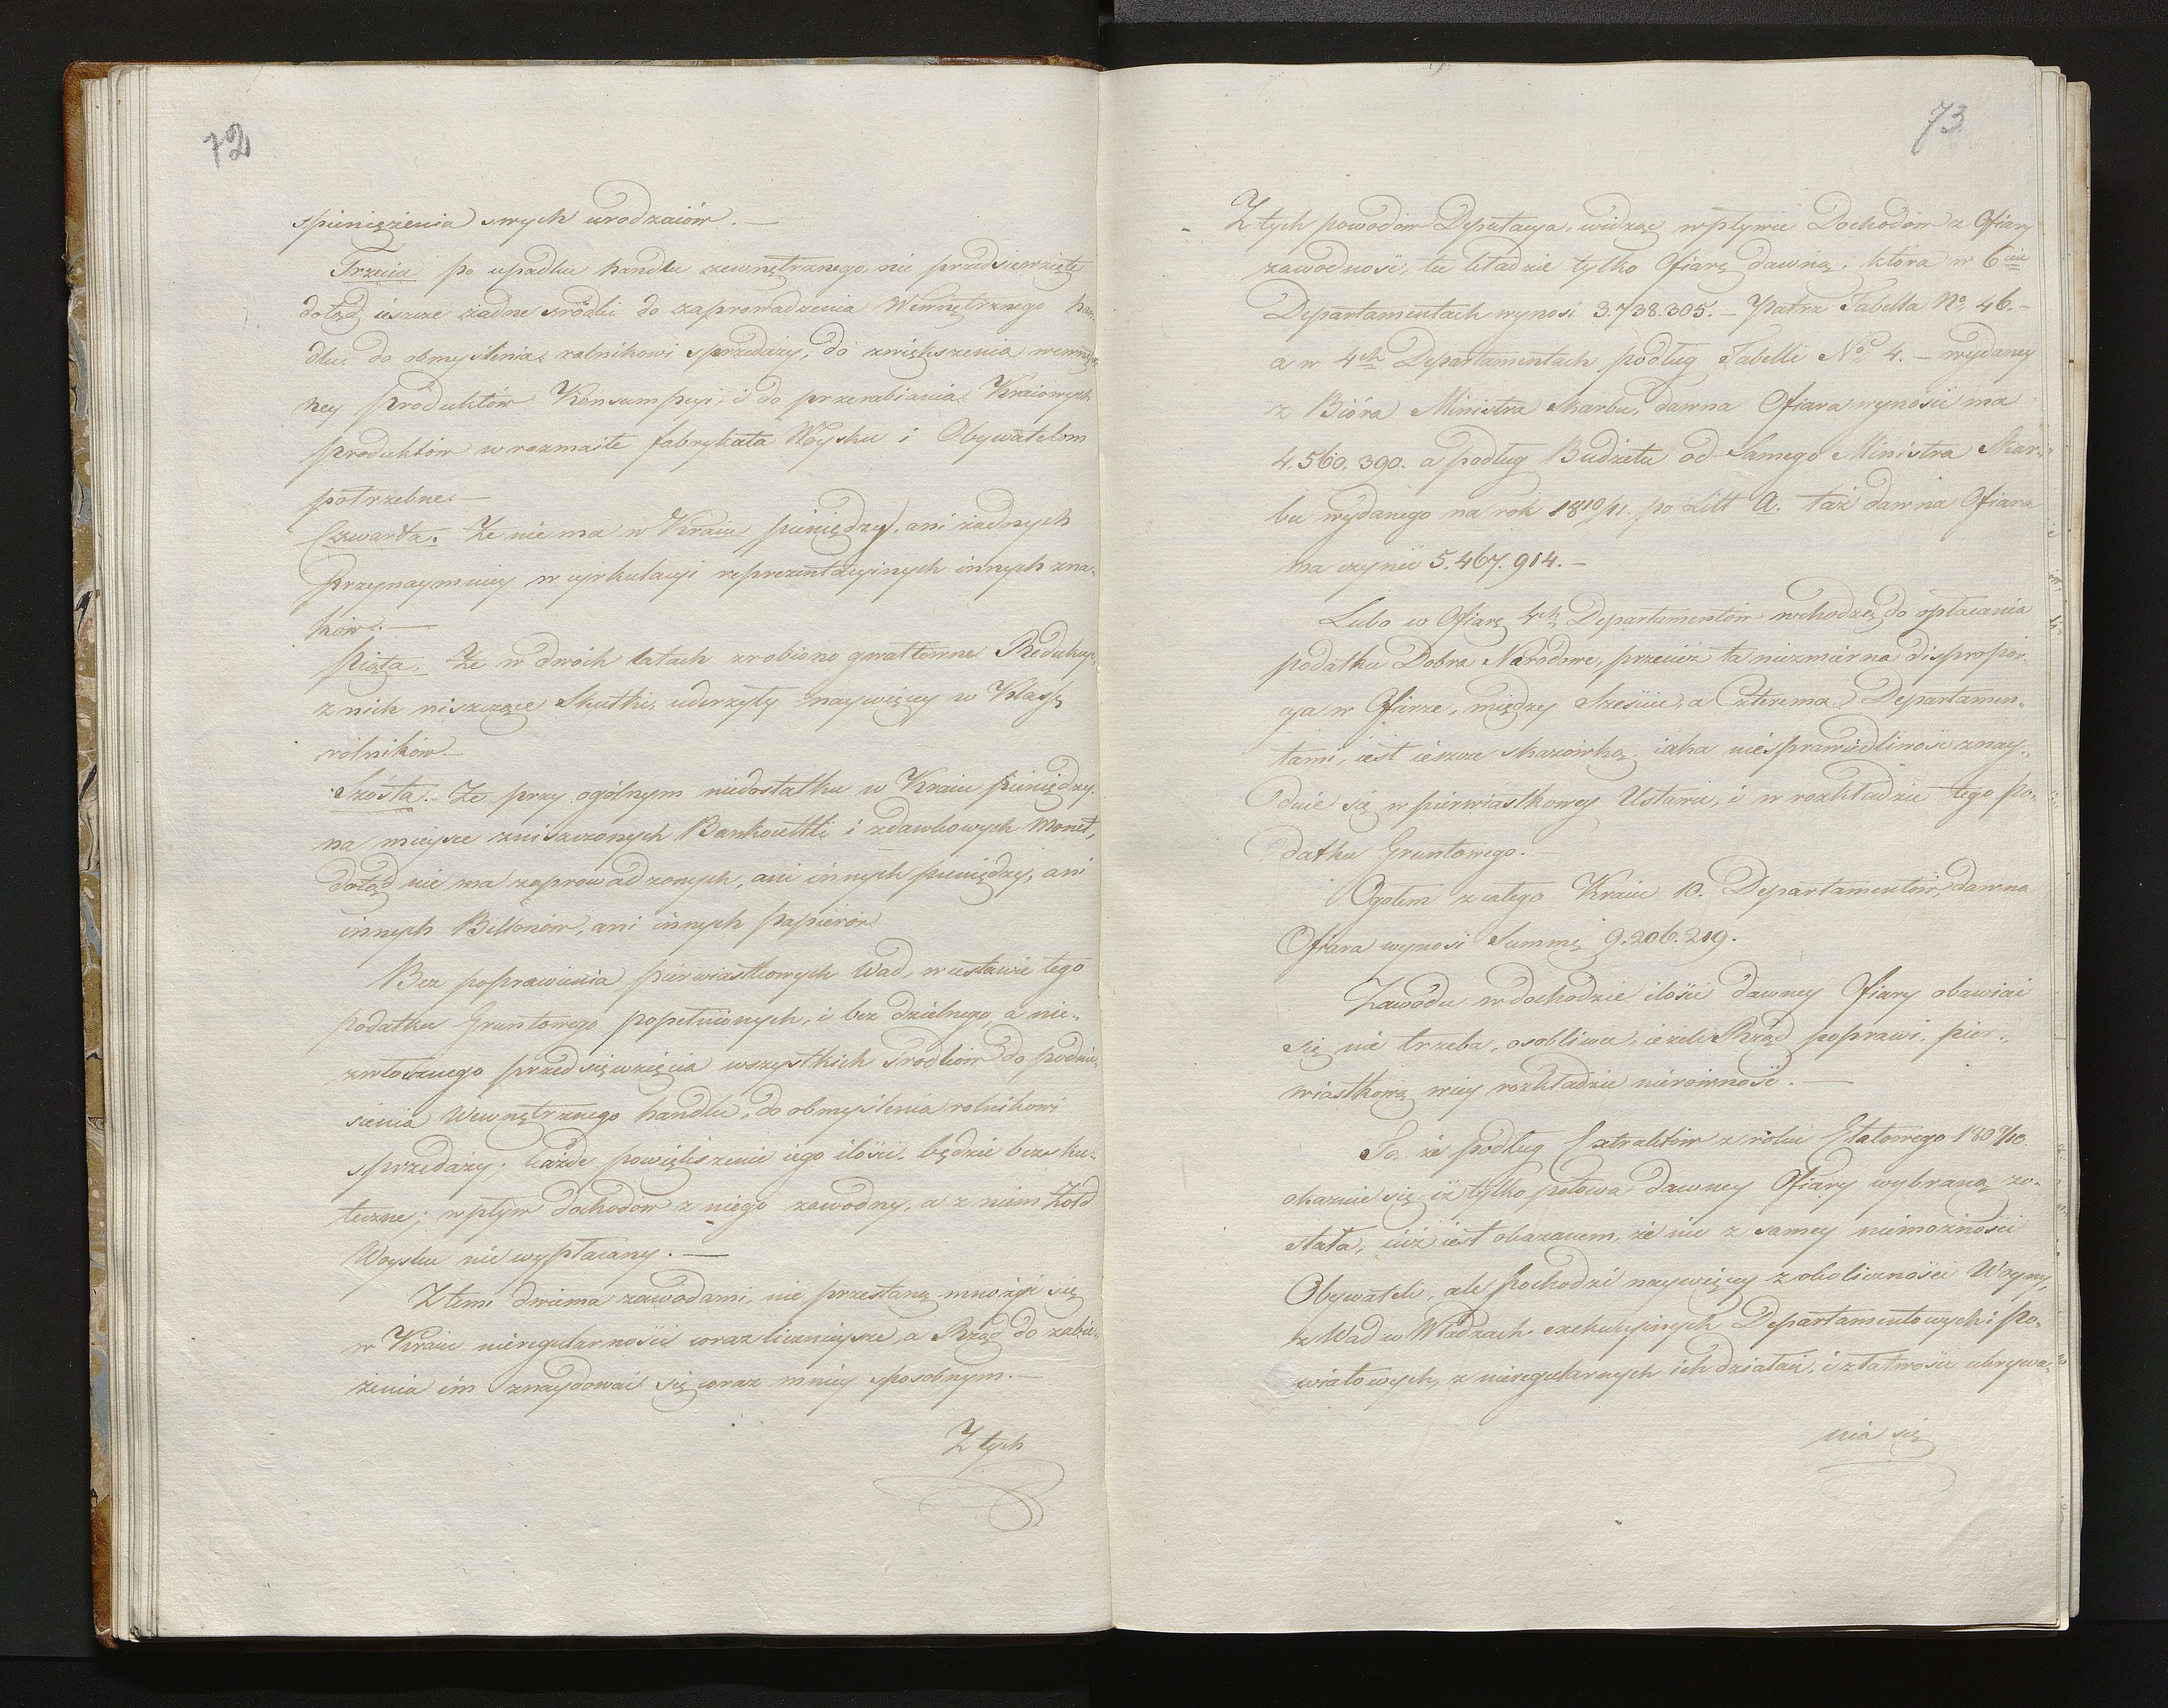 72
spieniężenia swych urodzaiów. —
Trzecia po upadku handlu zewnętrznego, nie przedsięwzięte
dotąd ieszcze żadne srodki do zaprowadzenia Wewnętrznego han-
dlu, do obmyślenia rolnikowi sprzedaży, do zwiększenia wewnętrz-
ney produktów Konsumpcyi, i do przerabiania Kraiowych
produktów w rozmaite fabrykata Woysku i Obywatelom
potrzebne. —
Czwarta. Że nie ma w Kraiu pieniędzy, ani żadnych
przynaymniey w cyrkulacyi reprezentacyinych innych zna-
ków. —
Piąta. Że w dwóch latach zrobione gwałtowne Redukcye,
z nich niszczące Skutki, uderzyły naywięcey w Klassę
rolników. —
Szósta. Że przy ogólnym niedostatku w Kraiu pieniędzy,
na mieysce zniszczonych Bankocetlii i zdawkowych Monet,
dotąd nie ma zaprowadzonych, ani innych pieniędzy, ani
innych Billonów, ani innych papierów
Bez poprawienia pierwiastkowych Wad, w ustawie tego
podatku Gruntowego popełnionych, i bez dzielnego, a nie-
zwłocznego przedsięwzięcia wszystkich srodków do podnie-
sienia Wewnętrznego handlu, do obmyślenia rolnikowi
sprzedaży; każde powiększenie iego ilości będzie bezsku-
teczne; wpływ dochodów z niego zawodny, a z niem Żołd
Woysku nie wypłacany. —
Z temi dwiema zawodami, nie przestaną mnożyć się
w Kraiu nieregularności coraz licznieysze, a Rząd do zabie-
żenia im znaydować się coraz mniey sposobnym. —
Z tych
73
Z tych powodów Deputacya, widząc w wpływie Dochodów z Ofiary
zawodność, tu kładzie tylko Ofiarę dawną, która w 6ciu
Departamentach wynosi 3.738.305. — Patrz Tabella No 46. —
a w 4ch Departamentach podług Tabelli No 4. — wydaney
z Bióra Ministra Skarbu, dawna Ofiara wynosić ma
4.560.390. a podług Budżetu od Samego Ministra Skar-
bu wydanego na rok 1810/11. po Litt A. taż dawna Ofiara
ma czynić 5.467.914. —
Lubo w Ofiarę 4ch Departamentów wchodzą do opłacania
podatku Dobra Narodowe, przecież ta niezmierna dispropor-
cya w Ofierze, między Sześciu, a Czterema Departamen-
tami, iest ieszcze skazówką, iaka niesprawiedliwość znay-
duie się w pierwiastkowey Ustawie, i w rozkładzie tego po-
datku Gruntowego. —
Ogołem z całego Kraiu 10. Departamentów, dawna
Ofiara wynosi Summę 9.206.219.
Zawodu w dochodzie ilości dawney Ofiary obawiać
się nie trzeba, osobliwie, ieżeli Rząd poprawi, pier-
wiastkową w iey rozkładzie nierówność. —
To że podług Extraktów z roku Etatowego 1809/10.
okazuie się iż tylko połowa dawney Ofiary wybraną zo-
stała, iuż iest okazanem, że nie z samey niemożności
Obywateli, ale pochodzi naywięcey z okoliczności Woyny,
z Wad w Władzach exekucyinych Departamentowych i Po-
wiatowych, z nieregularnych ich działań, i z łatwości ukrywa-
nia się